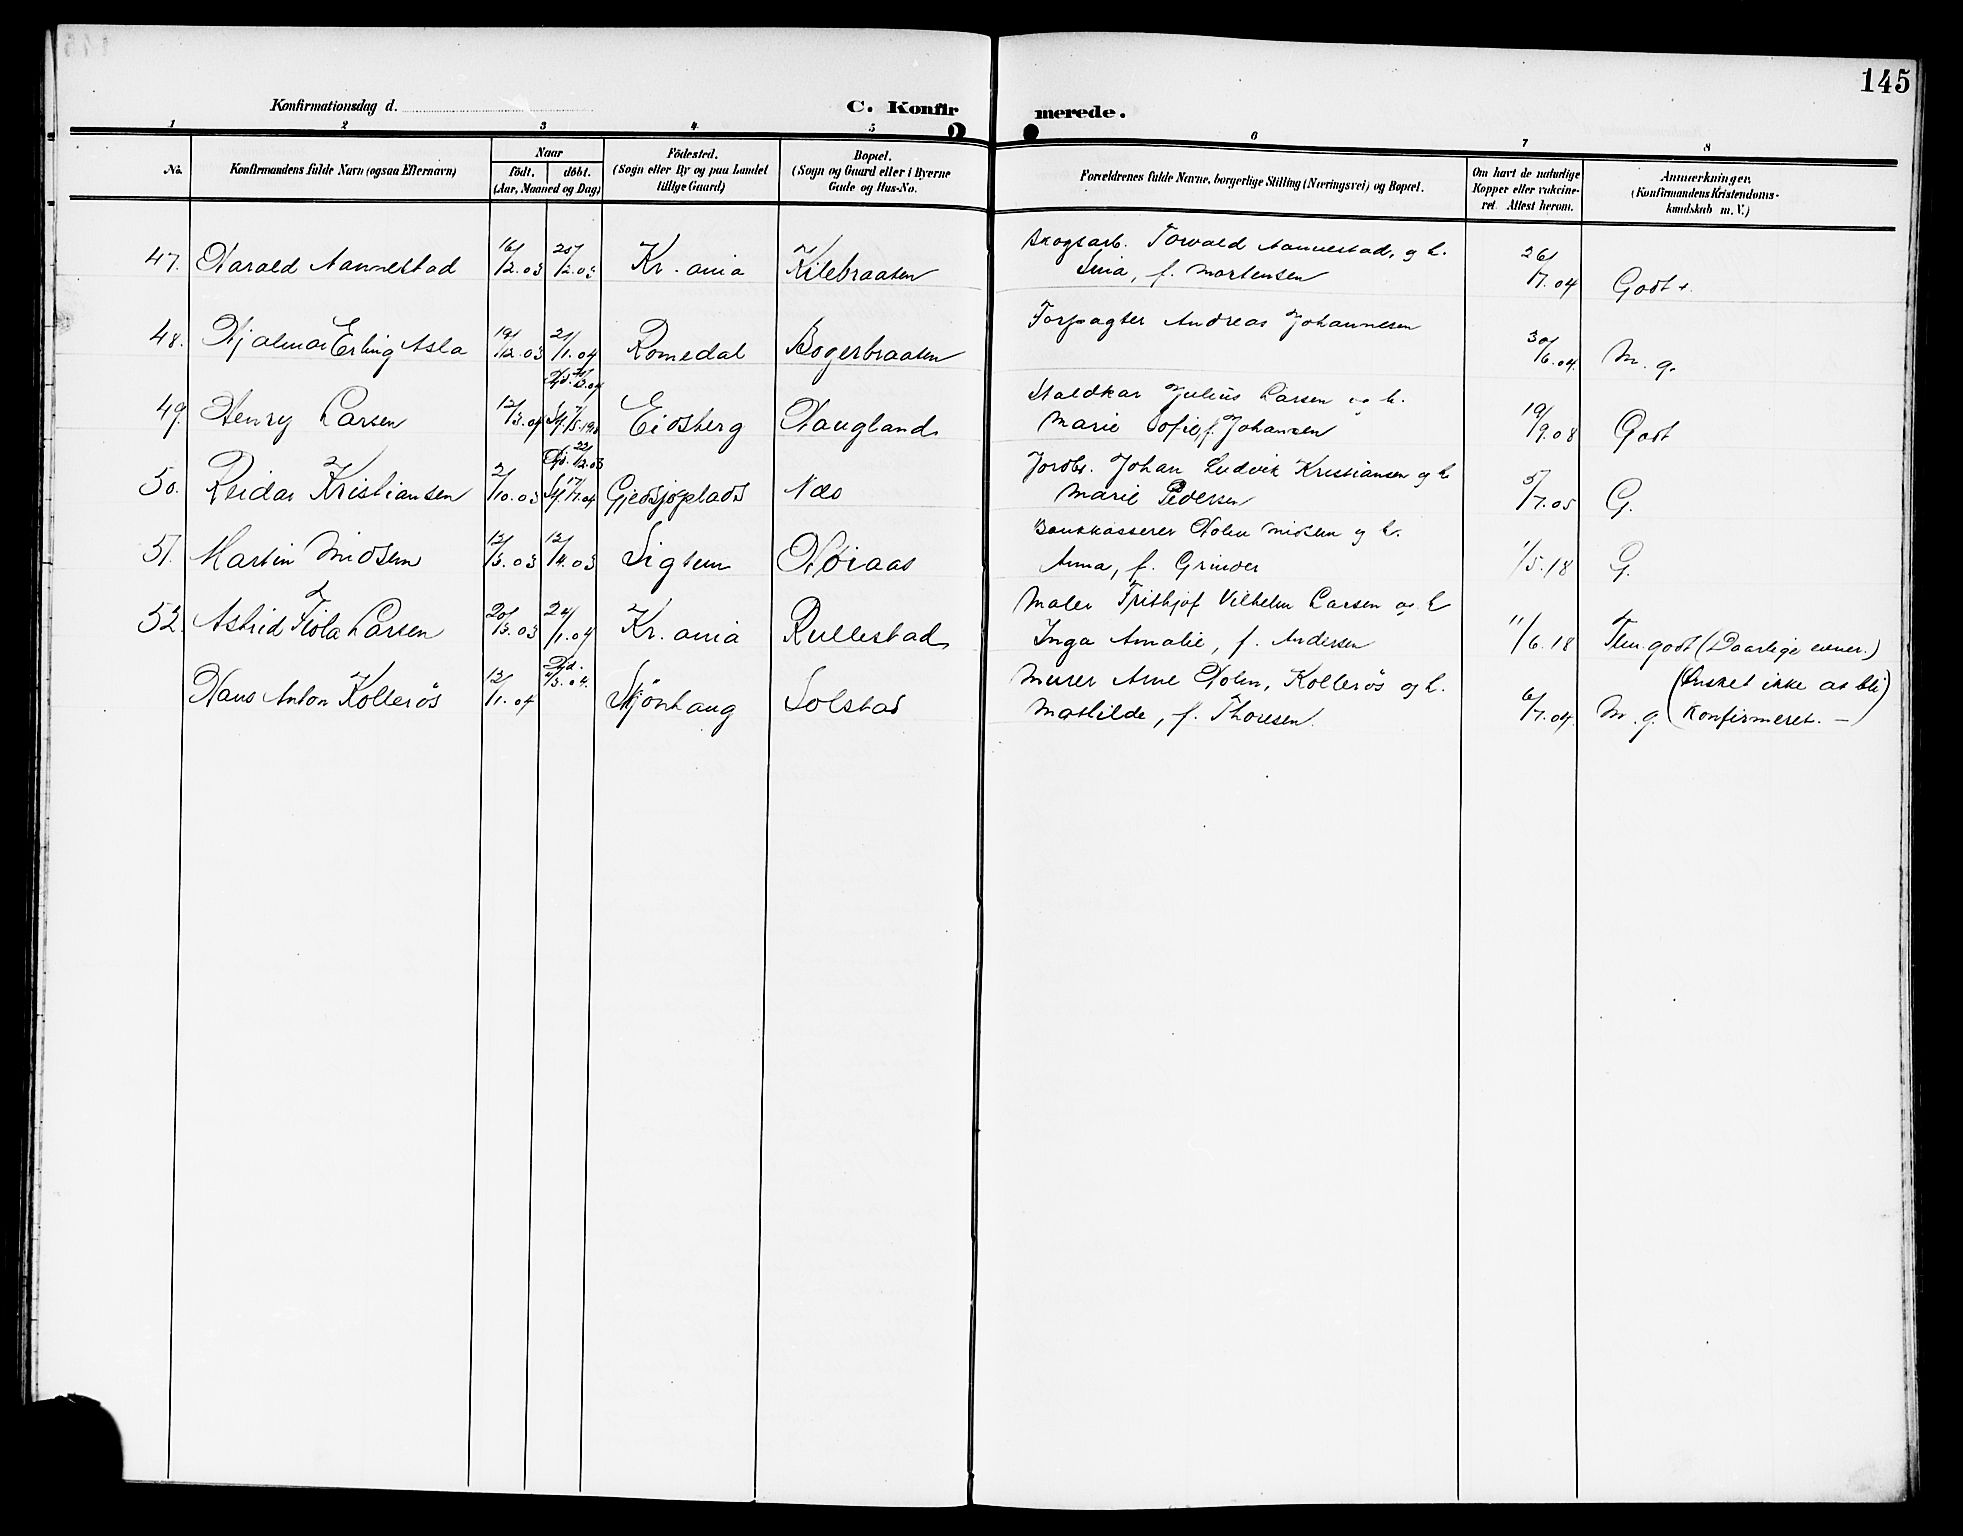 145
Konfirmationsdag d.
C. Konfirmerede.
1 2 3 4 5 6 7 8
No.
Konfirmandens fulde Navn (ogsaa Efternavn)
Naar
født, døbt.
(Aar, Maaned og Dag)
Födested.
(Sogn eller By og paa Landet
tillige Gaard)
Bopæl.
(Sogn og Gaard eller i Byerne
Gade og Hus-No.
Forældrenes fulde Navne, borgerlige Stilling (Næringsvei) og Bopæl.
Om havt de naturlige
Kopper eller vakcine-
ret. Attest herom.
Anmærkninger.
(Konfirmandens Kristendoms-
kundskab m. V.)
47. Harald Aannestad 16/12.03 Kr.ania Kilebraaten Skogsarb. Torvald Aannestad, og h.
f. Mortensen 26/7.04 Godt +.
48. Hjalmar Erling Asla 19/12.03 21/1.04 Romedal Bogerbraaten Forpagter Andreas Johannesen 30/6.04. M. g.
49. Henry Larsen 12/3.04 Eidsberg Haugland Staldkar Julius Larsen og h.
Marie Sofie, f. Johansen 19/9.08 Godt
50. Reidar Kristiansen 2/10.03 17/7.04 Gjedsjøplads Næs Jordbr. Johan Ludvik Kristiansen og h
Marie Pedersen 5/7.05 G.
51. Martin Midsem 12/3.03 12/4.03 Høiaas Bankkasserer Holm Midsem og h.
Anna, f. Grinder 1/5.18 G.
52. Astrid Fiola Larsen 20/3.03 24/1.04 Kr.ania Rullestad Maler Frithjof Vilhelm Larsen og h
Inga Amalie, f. Andersen 11/6.18 Tem. godt (Daarlige evner.)
Hans Anton Kollerös 12/1.04 Skjönhaug Solstad Murer Arne Holm, Kollerös og h.
Mathilde, f. Thoresen. 6/7.04. M. g. (Ønsket ikke at bli
Konfirmeret. —)